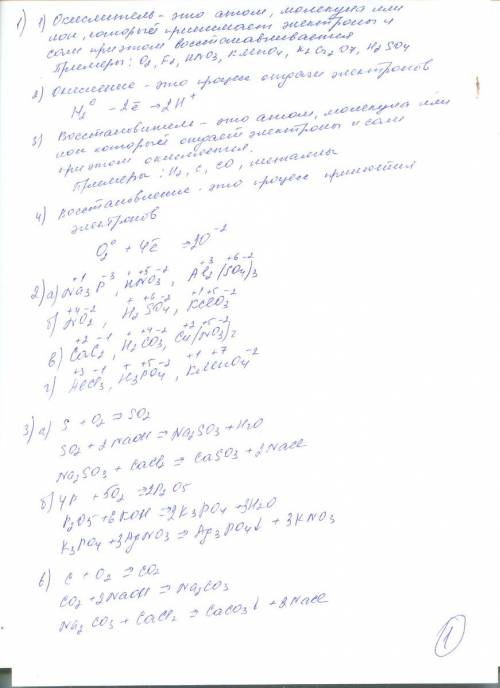 1) 1) Окислитель - это атом, молекула или
ион, который принимает электроны и
сам при этом восстанавливается
Примеры: O₂, F₂, HNO₃, KMnO₄, K₂Cr₂O₇, H₂SO₄
2) Окисление - это процесс отдачи электронов
H₂⁰ - 2ē → 2H⁺
3) Восстановитель - это атом, молекула или
ион который отдает электроны и сам
при этом окисляется.
Примеры: H₂, C, CO, металлы
4) Восстановление - это процесс принятия
электронов
O₂⁰ + 4ē → 2O⁻²
+1 -3 + +5 -2 +3 +6 -2
2) а) Na₃P, HNO₃, Al₂(SO₄)₃
+4 -2 + +6 -2 +1 +5 -2
б) NO₂, H₂SO₄, KClO₃
+2 -1 + +4 -2 +2 +5 -2
в) CaCl₂, H₂CO₃, Cu(NO₃)₂
+3 -1 + +5 -2 +1 +7 -2
г) AlCl₃, H₃PO₄, KMnO₄
3) а) S + O₂ = SO₂
SO₂ + 2NaOH = Na₂SO₃ + H₂O
Na₂SO₃ + CaCl₂ = CaSO₃ + 2NaCl
б) 4P + 5O₂ = 2P₂O₅
P₂O₅ + 6KOH = 2K₃PO₄ + 3H₂O
K₃PO₄ + 3AgNO₃ = Ag₃PO₄↓ + 3KNO₃
в) C + O₂ = CO₂
CO₂ + 2NaOH = Na₂CO₃
Na₂CO₃ + CaCl₂ = CaCO₃↓ + 2NaCl
1